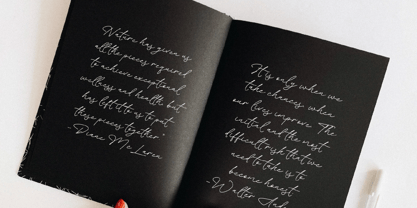 Nature has given us
all the pieces required
to achieve exceptional
wellness and health but
has left it to us to put
these pieces together
- Diane McLaren
It's only when we
take chances, when
our lives improve. The
initial and the most
difficult risk that we
need to take is to
become honest
- Walter